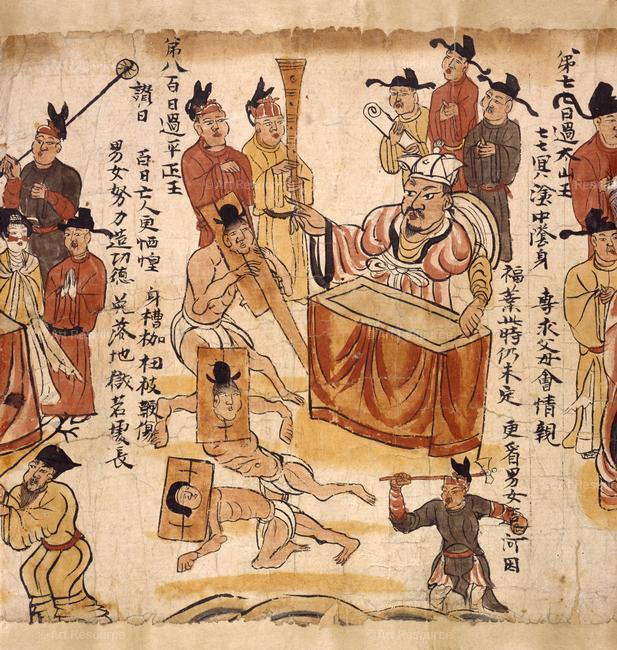 第七七日過太山王
七七冥塗中陰身 專求父母會情親
福業此時仍未定 更看男女造何因
第八百日過平正王
讚曰 百日亡人更恓惶 身槽枷杻被鞭傷
男女努力造功德 免落地獄苦處長
Art Resource